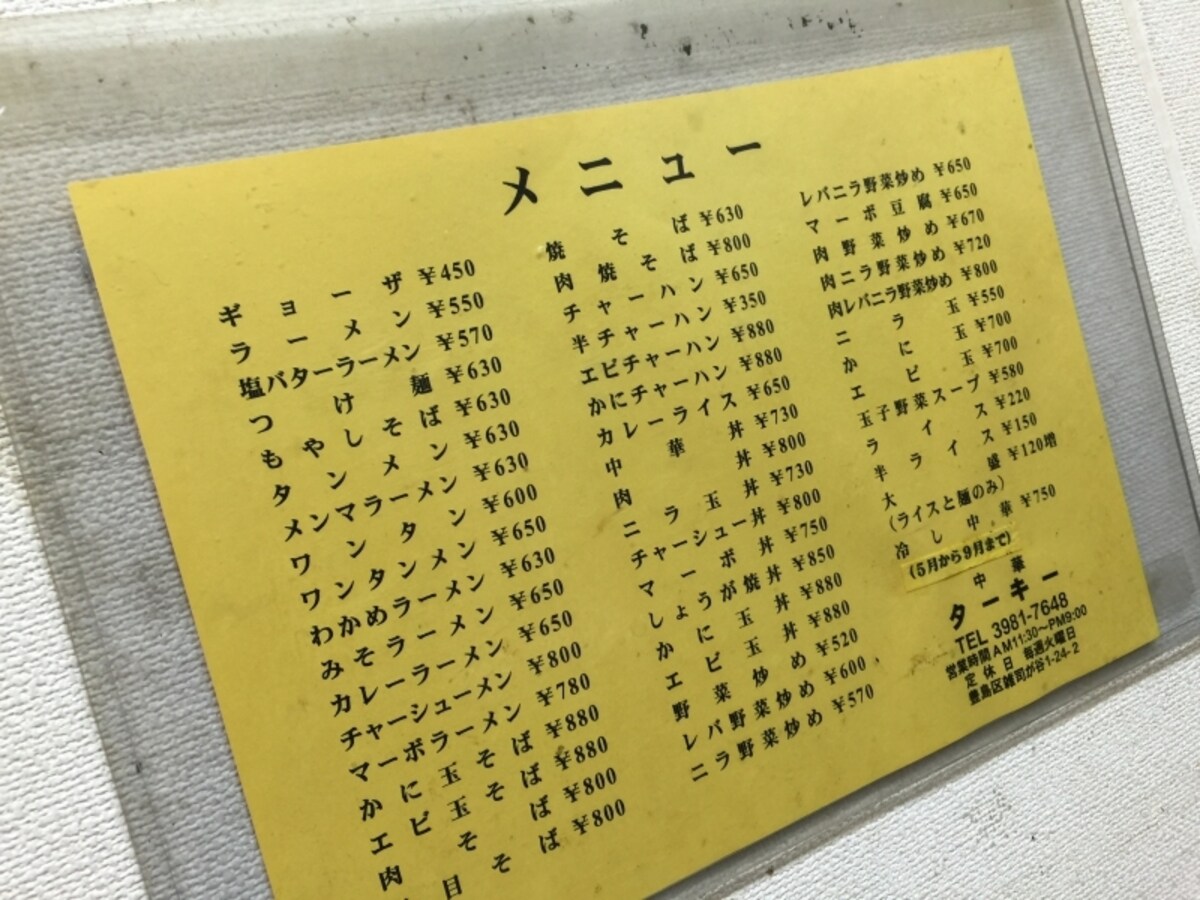 メニュー
ギョーザ ¥450
ラーメン ¥550
塩バターラーメン ¥570
つけ麺 ¥630
もやしそば ¥630
タンメン ¥630
メンマラーメン ¥630
ワンタン ¥600
ワンタンメン ¥650
わかめラーメン ¥630
みそラーメン ¥650
カレーラーメン ¥650
チャーシューメン ¥800
マーボラーメン ¥780
かに玉そば ¥880
エビ玉そば ¥880
肉そば ¥800
目そば ¥800
焼そば ¥630
肉焼そば ¥800
チャーハン ¥650
半チャーハン ¥350
エビチャーハン ¥880
かにチャーハン ¥880
カレーライス ¥650
中華丼 ¥730
肉丼 ¥800
ニラ玉丼 ¥730
チャーシュー丼 ¥800
マーボ丼 ¥750
しょうが焼丼 ¥850
かに玉丼 ¥880
エビ玉丼 ¥880
野菜炒め ¥520
レバ野菜炒め ¥600
ニラ野菜炒め ¥570
レバニラ野菜炒め ¥650
マーボ豆腐 ¥650
肉野菜炒め ¥670
肉ニラ野菜炒め ¥720
肉レバニラ野菜炒め ¥800
ニラ玉 ¥550
かに玉 ¥700
エビ玉 ¥700
玉子野菜スープ ¥580
ライス ¥220
半ライス ¥150
大盛 ¥120増
(ライスと麺のみ)
冷し中華 ¥750
(5月から9月まで)
中華
ターキー
TEL 3981-7648
営業時間 AM11:30〜PM9:00
定休日 毎週火曜日
豊島区雑司が谷1-24-2